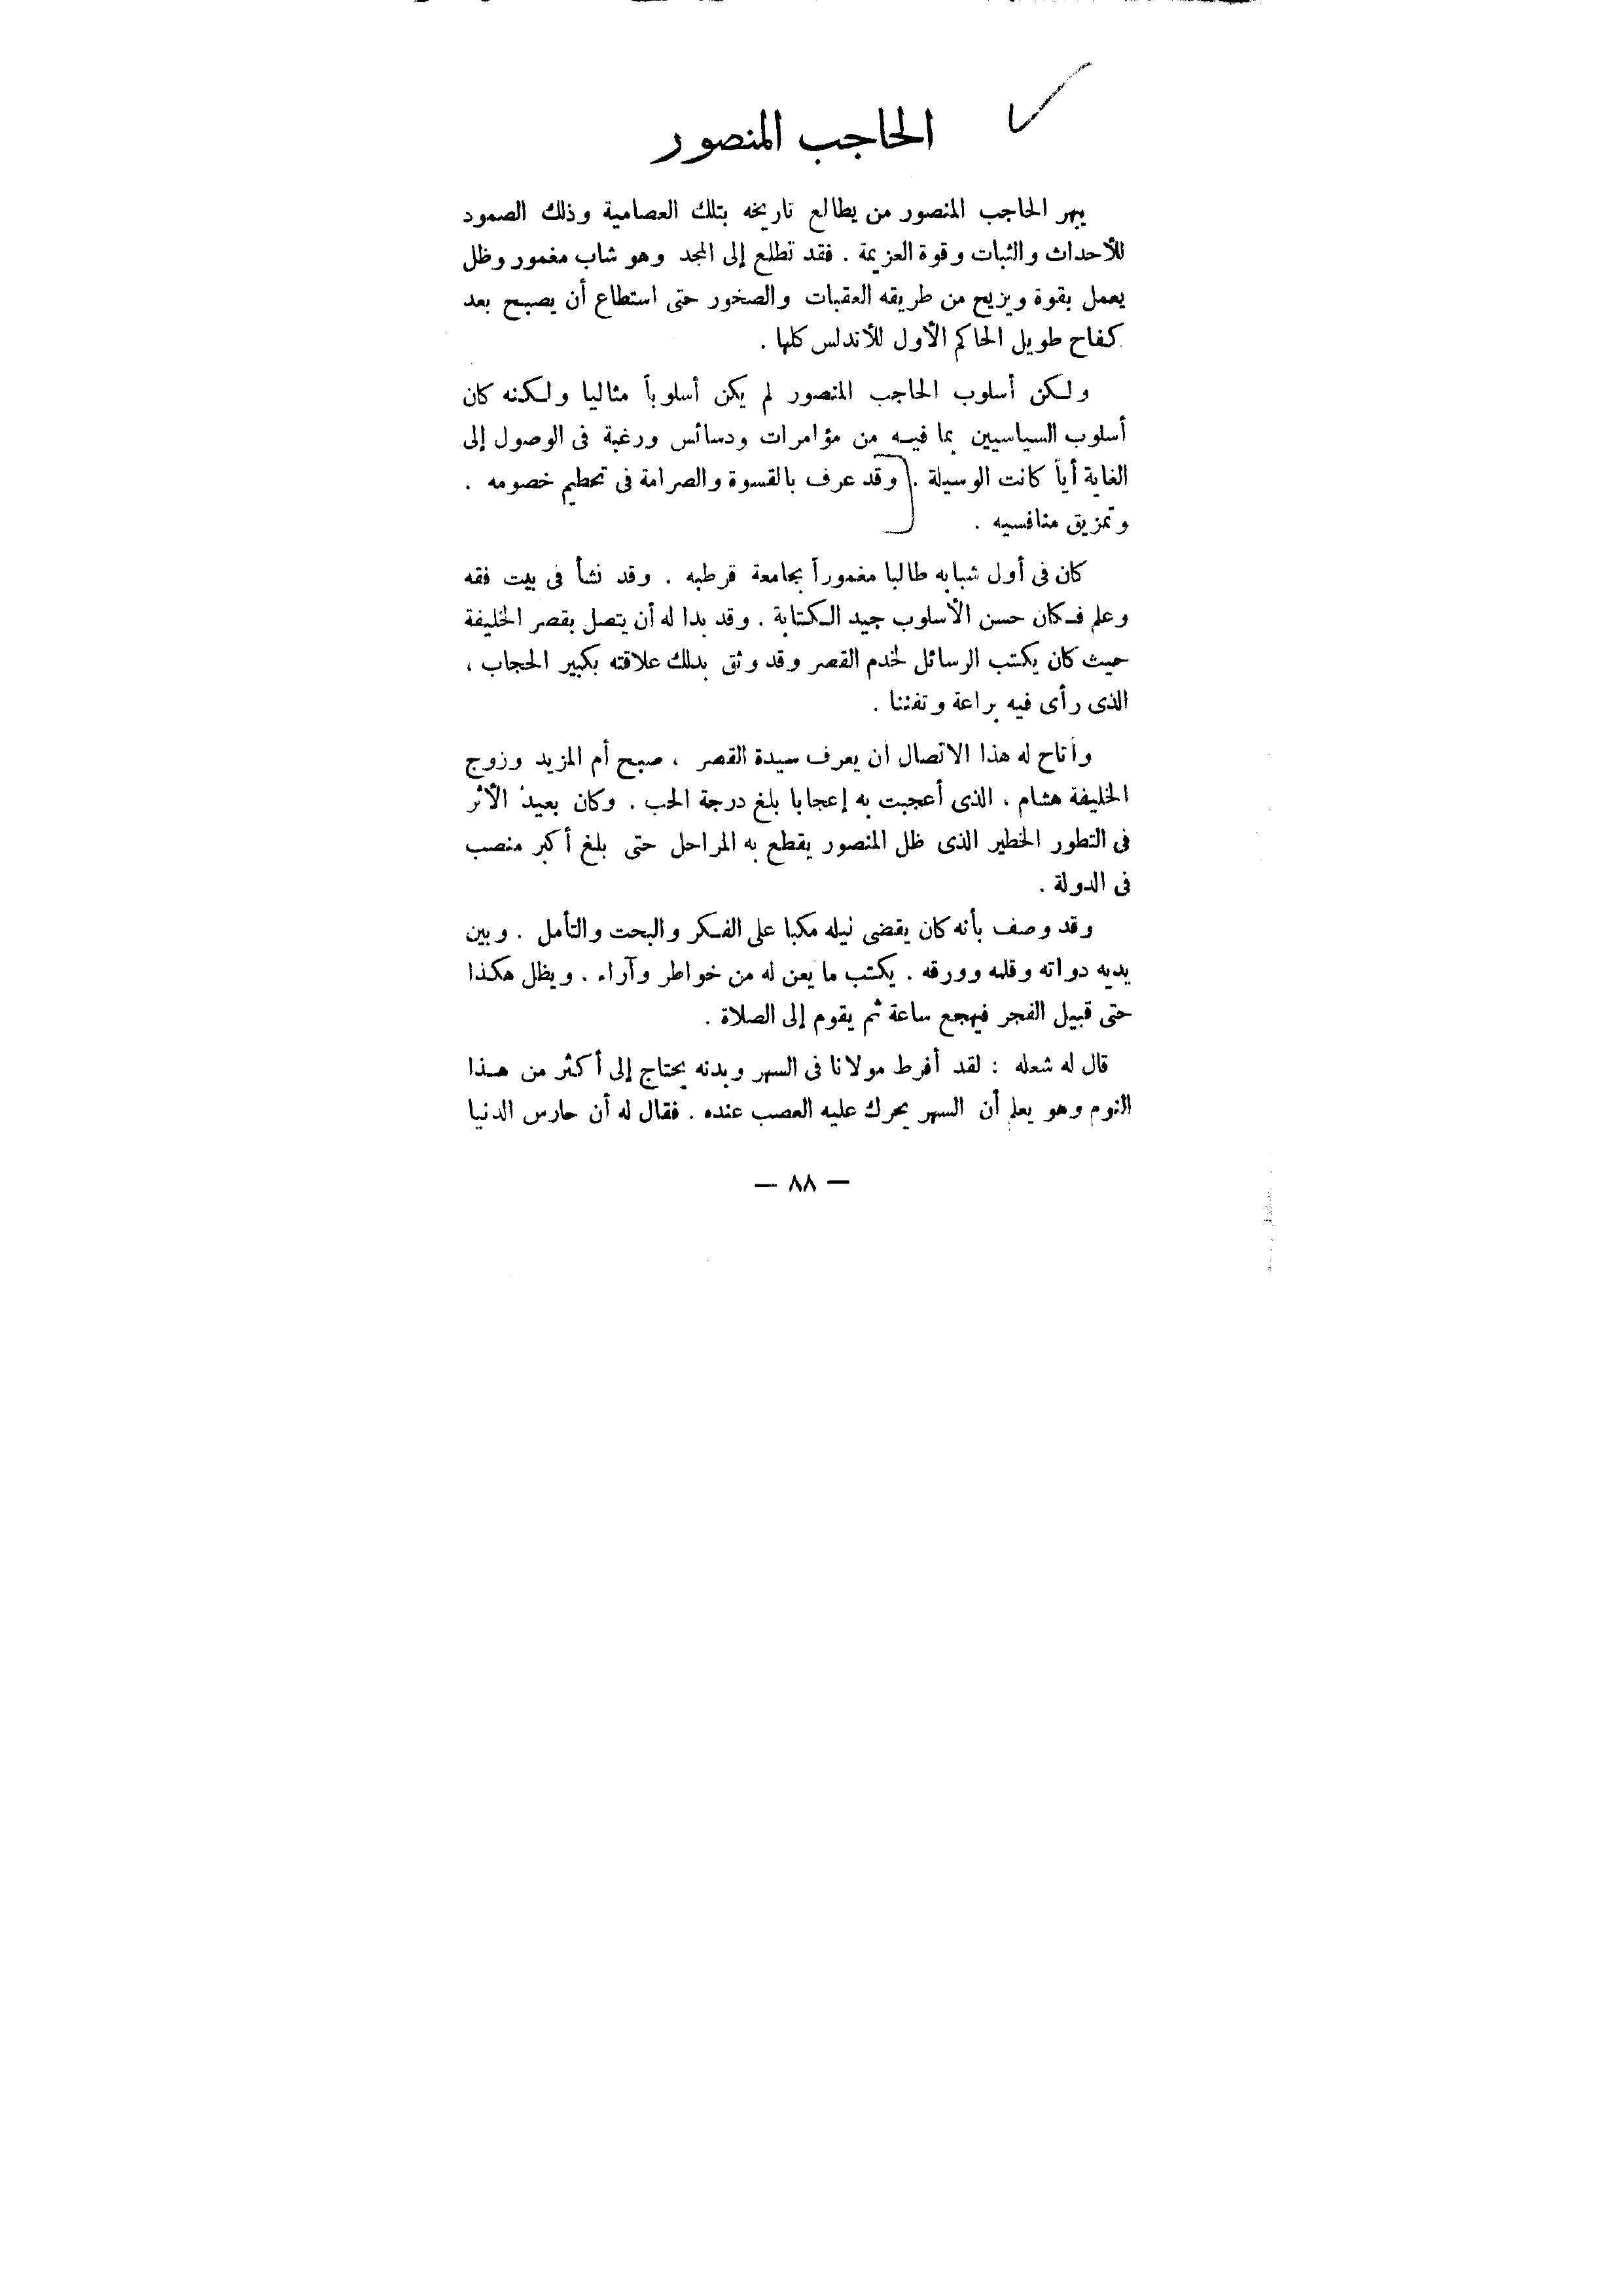 الحاجب المنصور
يبهر الحاجب المنصور من يطالع تاريخه بتلك العصامية وذلك الصمود
للأحداث والثبات وقوة العزيمة . فقد تطلع إلى المجد وهو شاب مغمور وظل
يعمل بقوة ويزيح من طريقه العقبات والصخور حتى استطاع أن يصبح بعد
كفاح طويل الحاكم الأول للأندلس كلها .
ولكن أسلوب الحاجب المنصور لم يكن أسلوباً مثاليا ولكنه كان
أسلوب السياسيين بما فيه من مؤامرات ودسائس ورغبة فى الوصول إلى
الغاية أياً كانت الوسيلة . وقد عرف بالقسوة والصرامة فى تحطيم خصومه .
وتمزيق منافسيه .
كان فى أول شبابه طالبا مغموراً بجامعة قرطبه . وقد نشأ فى بيت فقه
وعلم فكان حسن الأسلوب جيد الكتابة . وقد بدا له أن يتصل بقصر الخليفة
حيث كان يكتب الرسائل لخدم القصر وقد وثق بدلك علاقته بكبير الحجاب ،
الذى رأى فيه براعة وتفننا .
وأتاح له هذا الاتصال أن يعرف سيدة القصر ، صبح أم المزيد وزوج
الخليفة هشام ، الذى أعجبت به إعجابا بلغ درجة الحب . وكان بعيد الأثر
فى التطور الخطير الذى ظل المنصور يقطع به المراحل حتى بلغ أكبر منصب
فى الدولة .
وقد وصف بأنه كان يقضى ليله مكبا على الفكر والبحت والتأمل . وبين
يديه دواته وقلمه وورقه . يكتب ما يعن له من خواطر وآراء . ويظل هكذا
حتى قبيل الفجر فيهجع ساعة ثم يقوم إلى الصلاة .
قال له شعله : لقد أفرط مولانا فى السهر وبدنه يحتاج إلى أكثر من هذا
النوم وهو يعلم أن السهر يحرك عليه العصب عنده . فقال له أن حارس الدنيا
— ٨٨ —